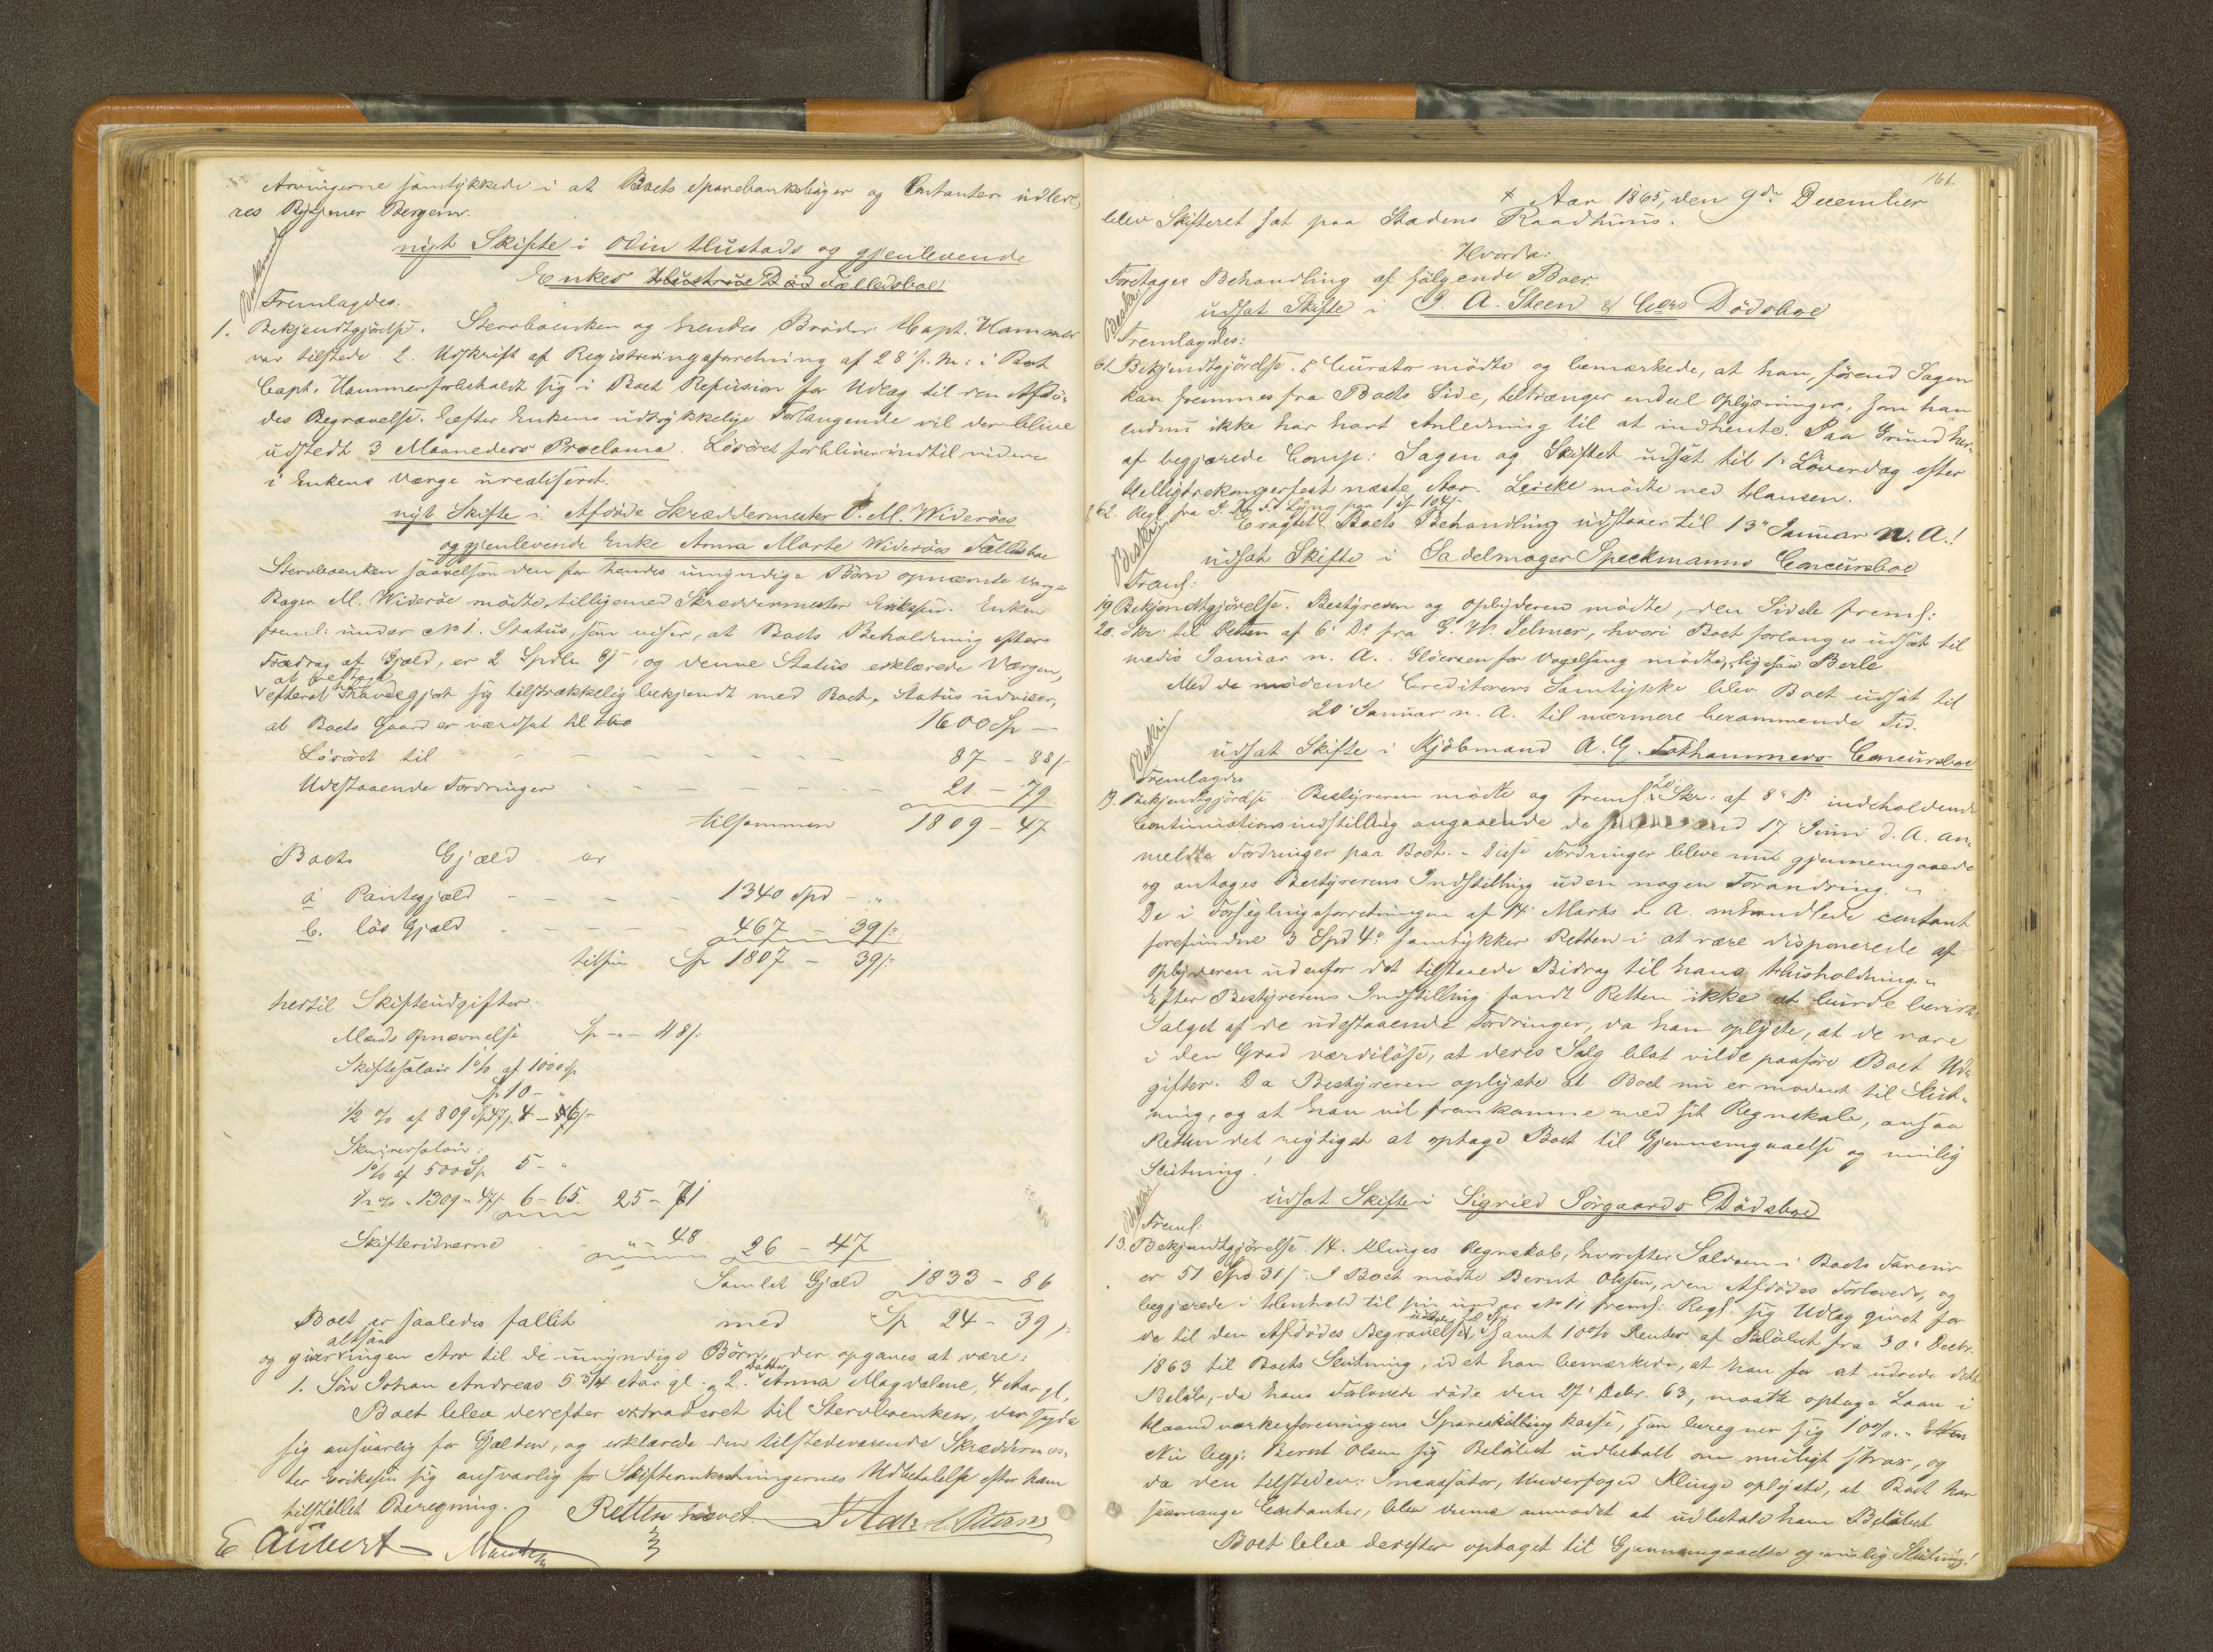 Arvingerne samtykkede i at Boets Sparebanksbøger og Contanter udleve-
res Bergein.
Beskreven
nyt Skifte i Odin Hustads og gjenlevende
Enkes Hustrue Død Fælledsboe
Fremlagdes.
1. Bekjendtgjørelse. Stervboenken og hendes Broder Capt. Hammer
var tilstede. 2. Udskrift af Registreringsforretning af 28' f. M: i Boet
Capt. Hammer forbeholdt sig i Boet Refusion for Udlæg til den Afdø-
des Begravelse. Efter Enkens udtrykkelige Forlangende vil der blive
udstedt 3 Maaneders Proclama. Løsøret forbliver indtil videre
i Enkens Værge urealiseret.
nyt Skifte i Afdøde Skræddermester P. M. Widerøes
og gjenlevende Enke Anna Marte Widerøes Fællesboe
Stervboenken saavelsom den for hendes umyndige Børn opnævnte Værge
Bager M. Widerøe mødte, tilligemed Skræddermester Eriksen. Enken
freml: under No 1. Status, som viser, at Boets Beholdning efter
Fradrag af Gjæld, er 2 Spdlr 8/-, og denne Status erklærede Værgen,
at vedtage
efterat have gjort sig tilstrækkelig bekjendt med Boet. Status udviser,
at Boets Gaard er værdsat til 160 1600 Sp -
Løsøret til 87 - 88/-
Udestaaende Fordringer 21 - 79
tilsammen 1809 - 47
Boets Gjæld er
a Pantegjæld 1340 Spd - "
b. løs Gjæld 467 - 39/-
tilsn Sp 1807 - 39/-
hertil Skifteudgifter
Mænds Opnævnelse Sp - " - 48/-
Skiftesalair 1 % af 1000 Sp
Sp 10 - "
1/2 % af 809 Sp 47/- 4 - 6/-
Skriversalair:
1 % af 500 Sp 5 - "
1/2 % " 1309 " 47/- 6 - 65. 25 - 71
Skifteridnerne " - 48 26 - 47
Samlet Gjæld 1833 - 86
Boet er saaledes fallit med Sp 24 - 39/-
altsaa
og giver ingen Arv til de umyndige Børn, der opgaves at være:
Datter
1. Søn Johan Andreas 5 3/4 Aar gl. og 2. Anna Magdalene, 4 Aar gl.
Boet blev derefter extraderet til Stervboenken, der sagde
sig ansvarlig for Gjælden, og erklærede den tilstedeværende Skrædderme-
ster Eriksen sig ansvarlig for Skifteomkostningernes Udbetalelse efter ham
tilstillet Beregning. Retten hævet.
E Aubert
161.
Aar 1865, den 9de December
blev Skifteret sat paa Stadens Raadhuus.
Hvorda:
Foretages Behandling af følgende Boer.
Beskr:
udsat Skifte i J. A. Steen & Coes Dødsboe
Fremlagdes:
61. Bekjendtgjørelse. Curator mødte og bemærkede, at han, førend Sagen
kan fremmes fra Boets Side, tiltrænger endeel Oplysninger, som han
endnu ikke har havt Anledning til at indhente. Paa Grund her-
af begjærede Comp: Sagen og Skiftet udsat til 1' Løverdag efter
Helligtrekongersfest næste Aar. Leicke mødte ved Hansen.
62. Regn fra J. Lyng paa 1 Sp 104/-
Eragtet: Boets Behandling udstaaer til 13' Januar n. A.!
Beskr:
udsat Skifte i Sadelmager Speckmanns Concursboe
Freml:
19 Bekjendtgjørelse. Bestyreren og Opbyderen mødte, den Sidste freml:
20. Skr: til Retten af 6' Ds fra G. W. Selmer, hvori Boet forlanges udsat til
medio Januar n. A. Gløersen for Vogelsang mødte, ligesaa Berle
Med de mødende Creditorers Samtykke blev Boet udsat til
20' Januar n. A. til nærmere berammende Tid.
Beskr:
udsat Skifte i Kjøbmand A. G. Tokhammers Concursboe
Fremlagdes
19. Bekjendtgjørelse. Bestyreren mødte og freml: 20 Skr. af 8' Ds indeholdende
Continuationsindstilling angaaende de senere end 17 Juni d. A. an-
meldte Fordringer paa Boet. - Disse Fordringer bleve nu gjennemgaaede
og antages Bestyrerens Indstilling uden nogen Forandring. "
De i Forseglingsforretningen af 14' Marts d. A. omhandlede contant
forefundne 3 Spd 4' samtykker Retten i at være disponerede af
Opbyderen udenfor det tilstaaede Bidrag til hans Huusholdning. "
Efter Bestyrerens Indstilling fandt Retten ikke at burde bevirke
Salget af de udestaaende Fordringer, da han oplyste, at de vare
i den Grad værdiløse, at deres Salg blot vilde paaføre Boet Ud-
gifter. Da Bestyreren oplyste at Boet nu er modent til Slut-
ning, og at han vil fremkomme med sit Regnskab, ansaa
Retten det rigtigst at optage Boet til Gjennemgaaelse og muilig
Slutning!
Beskr:
udsat Skifte i Sigried Sørgaards Dødsboe
Freml:
13. Bekjendtgjørelse. 14. Klinges Regnskab, hvorefter Saldoen i Boets Faveur
er 51 Spd 31/-. I Boet mødte Bernt Olsen, den Afdødes Forlovede, og
begjærede i Henhold til sin under No 11 freml: Regn. sig Udlæg givet for
de til den Afdødes Begravelse udlagte, samt 10 % Renter af Beløbet fra 30' Decbr.
1863 til Boets Slutning, idet han bemærkede, at han for at udrede dette
Beløb, da hans Forlovede døde den 27' Decbr. 63, maatte optage Laan i
Haandværkerforeningens Spareskilling Kasse, som beregner sig 10 %.
Nu begj: Bernt Olsen sig Beløbet udbetalt om muligt strax, og
da den tilstedev: Incassator, Underfoged Klinge oplyste, at Boet har
saamange Contanter, blev denne anmodet at udbetale ham Beløbet
Boet blev derefter optaget til Gjennemgaaelse og muelig Slutning!